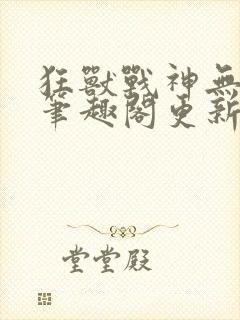 狂獸戰神無
筆趣閣更新
堂堂殿